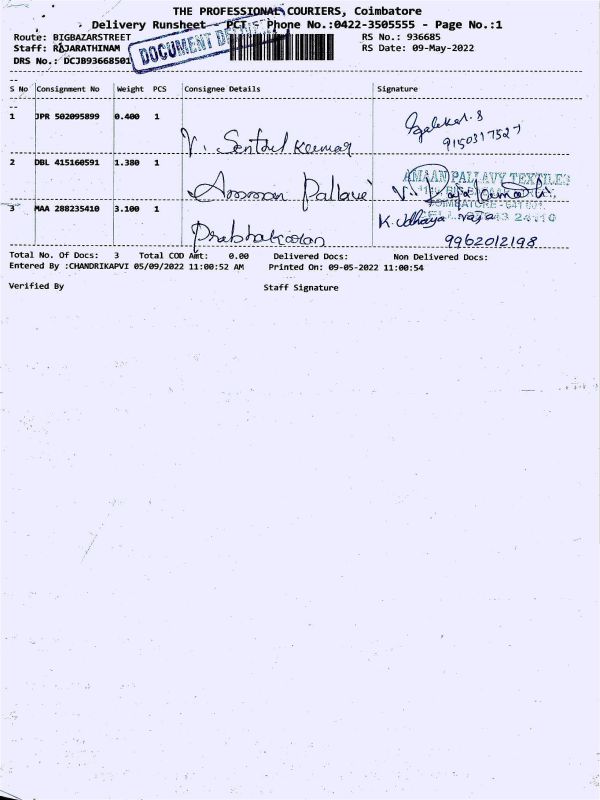 THE PROFESSIONAL COURIERS, Coimbatore
Delivery Runsheet - PCT : Phone No.:0422-3505555 - Page No.:1
Route: BIGBAZARSTREET RS No.: 936685
Staff: RAJARATHINAM RS Date: 09-May-2022
DRS No.: DCJB93668501
DOCUMENT
S No Consignment No Weight PCS Consignee Details Signature
1 JPR 502095899 0.400 1
9150317527
V. Senthil Kumar
2 DBL 415160591 1.380 1
AMAAN PALLAVY TEXTILES
Amman Pallavi
COIMBATORE - 641 001.
3 MAA 288235410 3.100 1
K. Udhaya raja
Prabhakaran
9962012198
Total No. Of Docs: 3 Total COD Amt: 0.00 Delivered Docs: Non Delivered Docs:
Entered By :CHANDRIKAPVI 05/09/2022 11:00:52 AM Printed On: 09-05-2022 11:00:54
Verified By Staff Signature